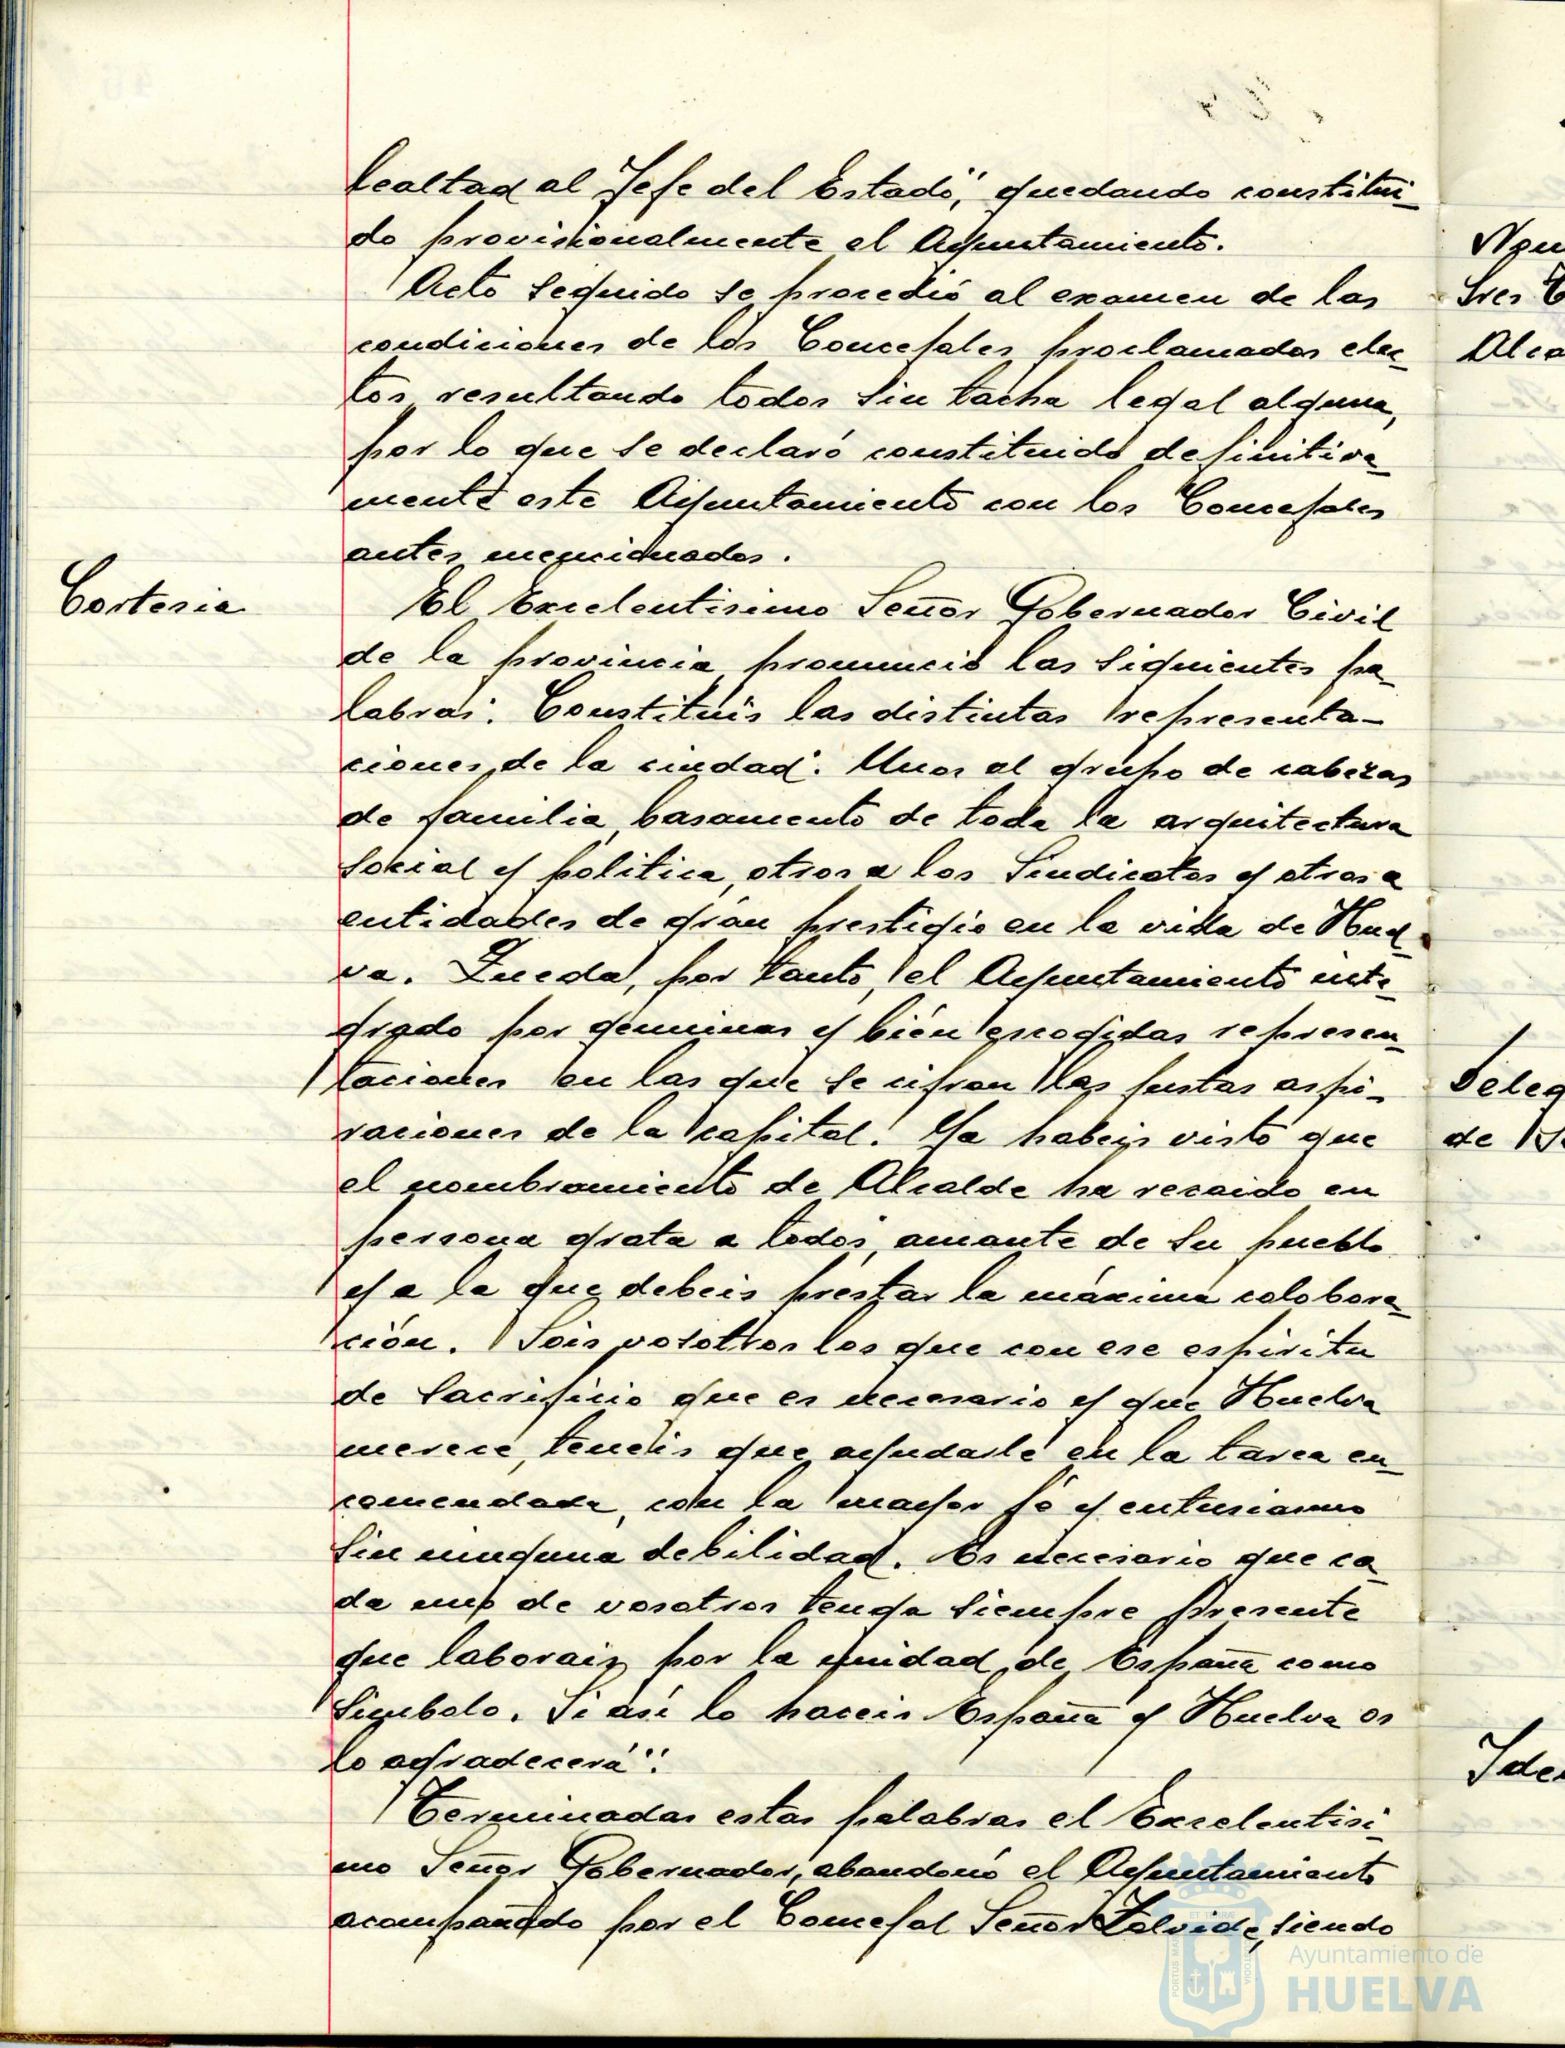 lealtad al Jefe del Estado", quedando constitui-
do provisionalmente el Ayuntamiento.
Acto seguido se procedió al examen de las
condiciones de los Concejales proclamados elec-
tos resultando todos sin tacha legal alguna,
por lo que se declaró constituido definitiva-
mente este Ayuntamiento con los Concejales
antes mencionados.
Cortesia
El Excelentisimo Señor Gobernador Civil
de la provincia pronunció las siguientes pa-
labras: Constituis las distintas representa-
ciones de la ciudad. Unos al grupo de cabezas
de familia, basamento de toda la arquitectura
social y politica, otros a los Sindicatos y otros a
entidades de gran prestigio en la vida de Huel-
va. Queda, por tanto, el Ayuntamiento inte-
grado por genuinas y bién escogidas represen-
taciones en las que se cifran las justas aspi-
raciones de la capital. Ya habeis visto que
el nombramiento de Alcalde ha recaido en
persona grata a todos, amante de su pueblo
y a la que debeis prestar la máxima colabora-
ción. Sois vosotros los que con ese espiritu
de sacrificio que es necesario y que Huelva
merece, teneis que ayudarle en la tarea en-
comendada, con la mayor fé y entusiasmo
sin ninguna debilidad. Es necesario que ca-
da uno de vosotros tenga siempre presente
que laborais por la unidad de España como
simbolo. Si asi lo haceis España y Huelva os
lo agradecerá".
Terminadas estas palabras el Excelentisi-
mo Señor Gobernador, abandonó el Ayuntamiento
acompañado por el Concejal Señor Zalvide, siendo
Sres
de
Ayuntamiento de
HUELVA